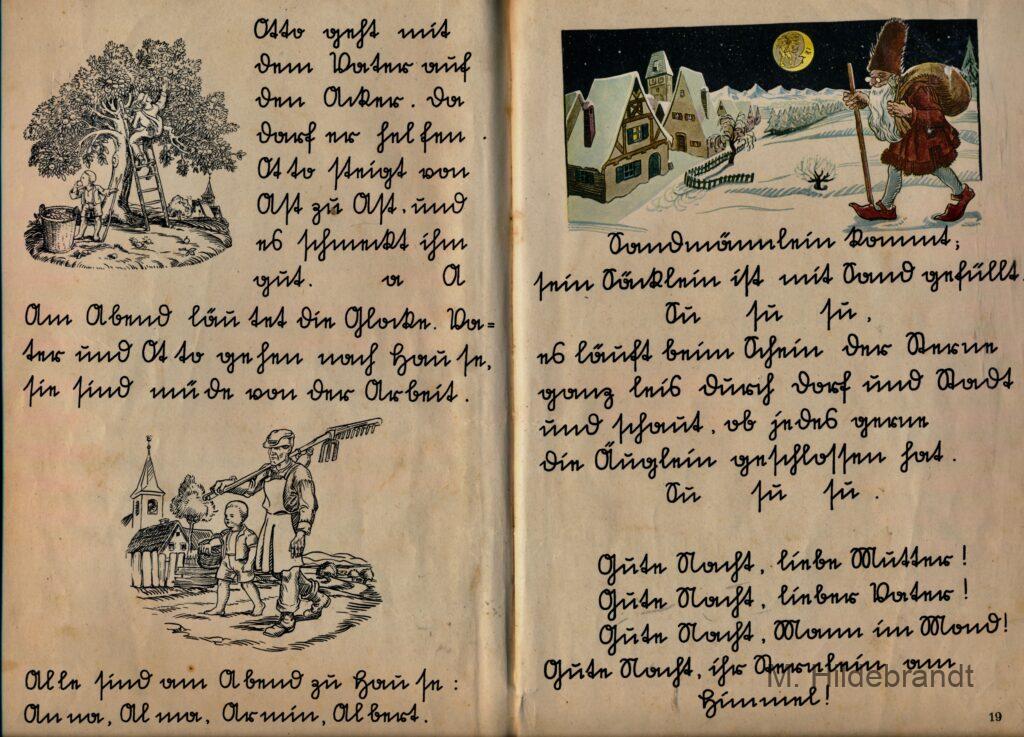 Otto geht mit
dem Vater auf
den Acker. Da
darf er helfen.
Otto steigt von
Ast zu Ast, und
es schmeckt ihm
gut. a A
Am Abend läutet die Glocke. Va=
ter und Otto gehen nach Hause,
sie sind müde von der Arbeit.
Alle sind am Abend zu Hause:
Anna, Alma, Armin, Albert.
Sandmännlein kommt;
sein Säcklein ist mit Sand gefüllt.
Su su su,
es läuft beim Schein der Sterne
ganz leis durch Dorf und Stadt
und schaut, ob jedes gerne
die Äuglein geschlossen hat.
Su su su.
Gute Nacht, liebe Mutter!
Gute Nacht, lieber Vater!
Gute Nacht, Mann im Mond!
Gute Nacht, ihr Sternlein am
Himmel!
M. Hildebrandt
19